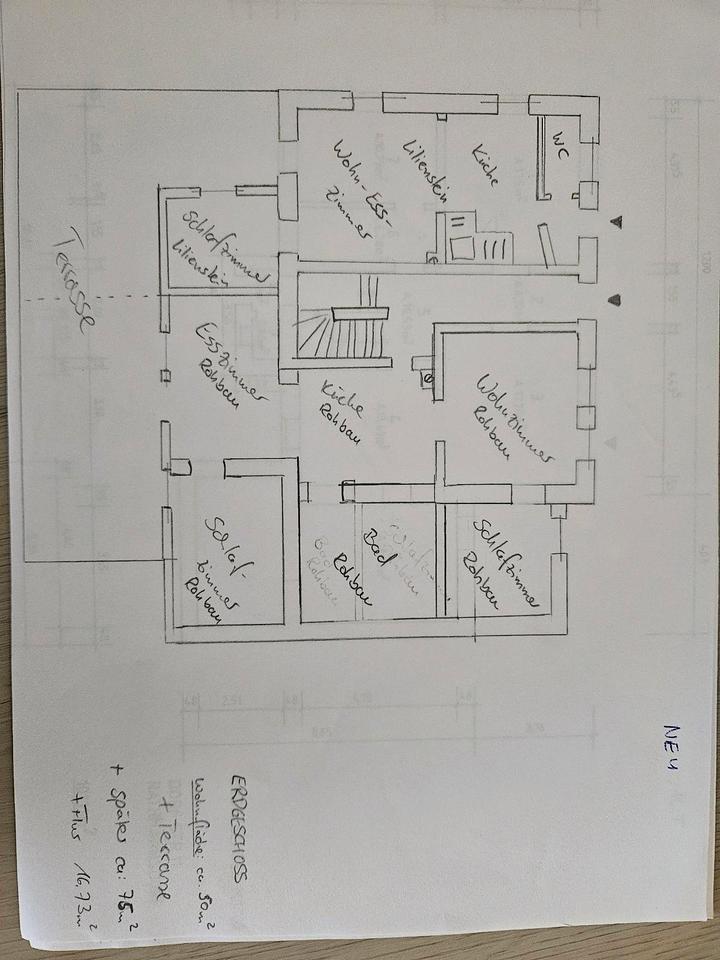 WC
Küche
Lilienstein
Wohn-Ess-
zimmer
Schlafzimmer
Lilienstein
Terrasse
Esszimmer
Rohbau
Küche
Rohbau
Wohnzimmer
Rohbau
Schlafzimmer
Rohbau
Bad
Rohbau
Bad
Rohbau
Schlaf-
zimmer
Rohbau
NEU
ERDGESCHOSS
Wohnfläche: ca. 50m²
+ Terrasse
+ später ca: 75m²
+ Flur 16,73m²